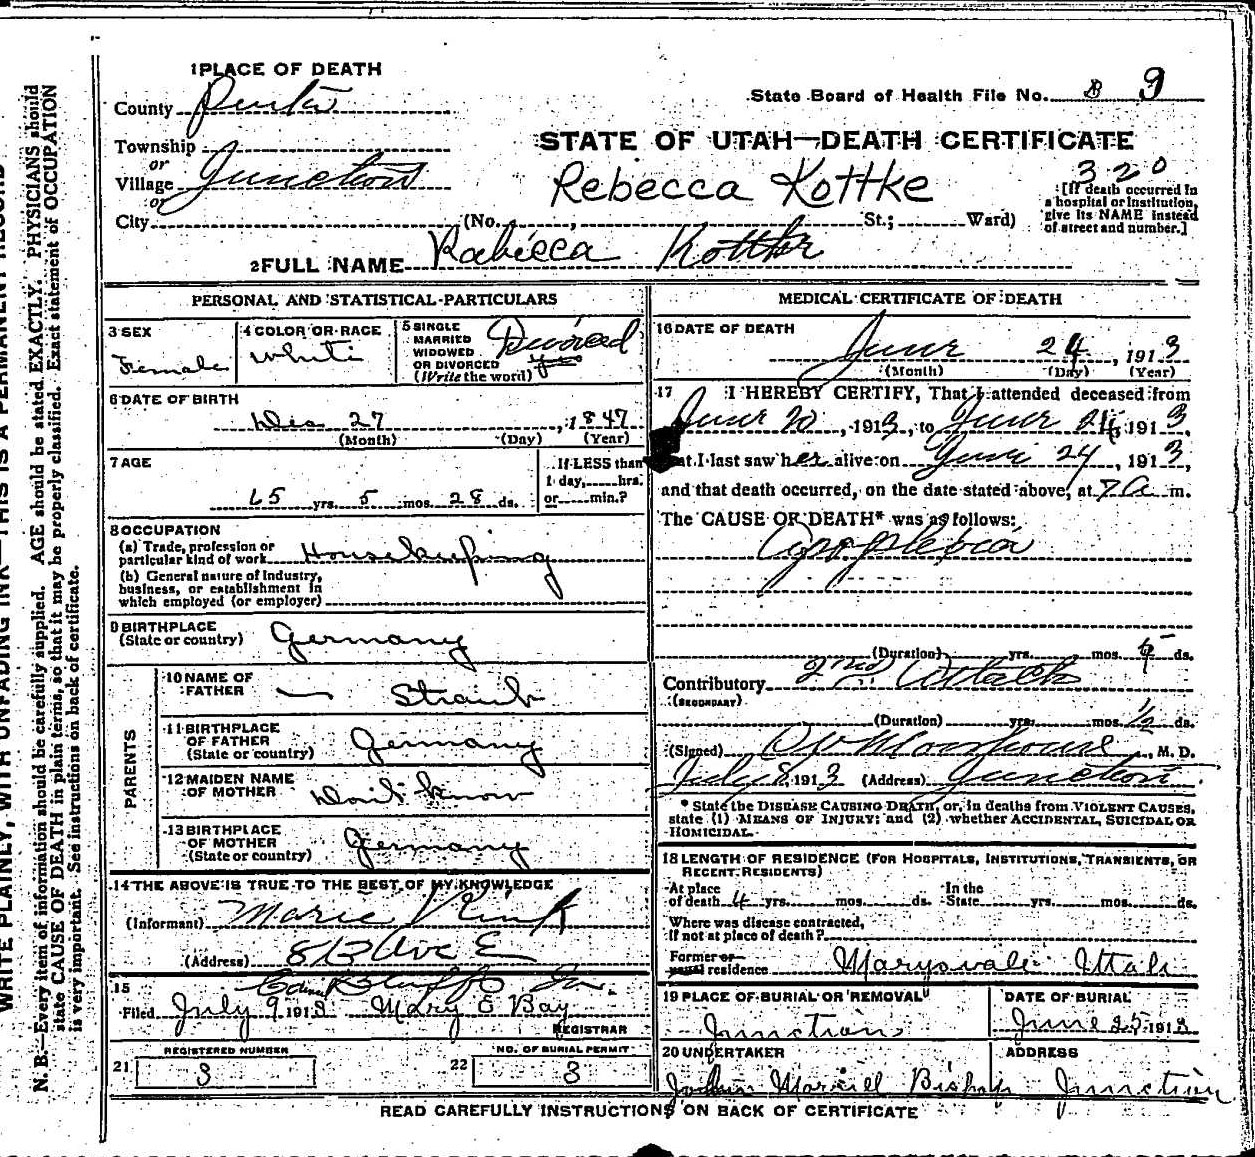 1 PLACE OF DEATH
County Piute
State Board of Health File No. 9
STATE OF UTAH—DEATH CERTIFICATE
Township
or
Village Junction
or
Rebecca Kottke
320
[If death occurred in
a hospital or institution,
give its NAME instead
of street and number.]
City (No. , St.; Ward)
2 FULL NAME Rabecca Kottke
PERSONAL AND STATISTICAL PARTICULARS
3 SEX
Female
4 COLOR OR RACE
White
5 SINGLE
MARRIED
WIDOWED
OR DIVORCED
(Write the word)
Divorced
yes
6 DATE OF BIRTH
Dec 27 , 1847
(Month) (Day) (Year)
7 AGE
65 yrs. 5 mos. 28 ds.
If LESS than
1 day, hrs.
or min.?
8 OCCUPATION
(a) Trade, profession or
particular kind of work Housekeeping
(b) General nature of industry,
business, or establishment in
which employed (or employer)
9 BIRTHPLACE
(State or country) Germany
PARENTS
10 NAME OF
FATHER — Straub
11 BIRTHPLACE
OF FATHER
(State or country) Germany
12 MAIDEN NAME
OF MOTHER Don't know
13 BIRTHPLACE
OF MOTHER
(State or country) Germany
14 THE ABOVE IS TRUE TO THE BEST OF MY KNOWLEDGE
(Informant) Marie
(Address) 813 Ave E
15
Filed July 9 1913 Mary E Bay
REGISTRAR
REGISTERED NUMBER
21 3
NO. OF BURIAL PERMIT
22 3
MEDICAL CERTIFICATE OF DEATH
16 DATE OF DEATH
June 24 , 1913
(Month) (Day) (Year)
17 I HEREBY CERTIFY, That I attended deceased from
June 20 , 1913, to June 24 1913,
that I last saw her alive on June 24 , 1913,
and that death occurred, on the date stated above, at 7 A m.
The CAUSE OF DEATH* was as follows:
Apoplexia
(Duration) yrs. mos. ds.
Contributory 2nd Attack
(SECONDARY)
(Duration) yrs. mos. 1/2 ds.
(Signed) , M. D.
July 8, 1913 (Address) Junction
* State the DISEASE CAUSING DEATH, or, in deaths from VIOLENT CAUSES,
state (1) MEANS OF INJURY; and (2) whether ACCIDENTAL, SUICIDAL OR
HOMICIDAL.
18 LENGTH OF RESIDENCE (FOR HOSPITALS, INSTITUTIONS, TRANSIENTS, OR
RECENT RESIDENTS)
At place
of death 4 yrs. mos. ds.
In the
State yrs. mos. ds.
Where was disease contracted,
If not at place of death?
Former or
usual residence Marysvale Utah
19 PLACE OF BURIAL OR REMOVAL
Junction
DATE OF BURIAL
June 25 1913
20 UNDERTAKER
John Morrill Bishop
ADDRESS
Junction
READ CAREFULLY INSTRUCTIONS ON BACK OF CERTIFICATE
WRITE PLAINLY, WITH UNFADING INK—THIS IS A PERMANENT RECORD
N. B.—Every item of information should be carefully supplied. AGE should be stated EXACTLY. PHYSICIANS should
state CAUSE OF DEATH in plain terms, so that it may be properly classified. Exact statement of OCCUPATION
is very important. See instructions on back of certificate.